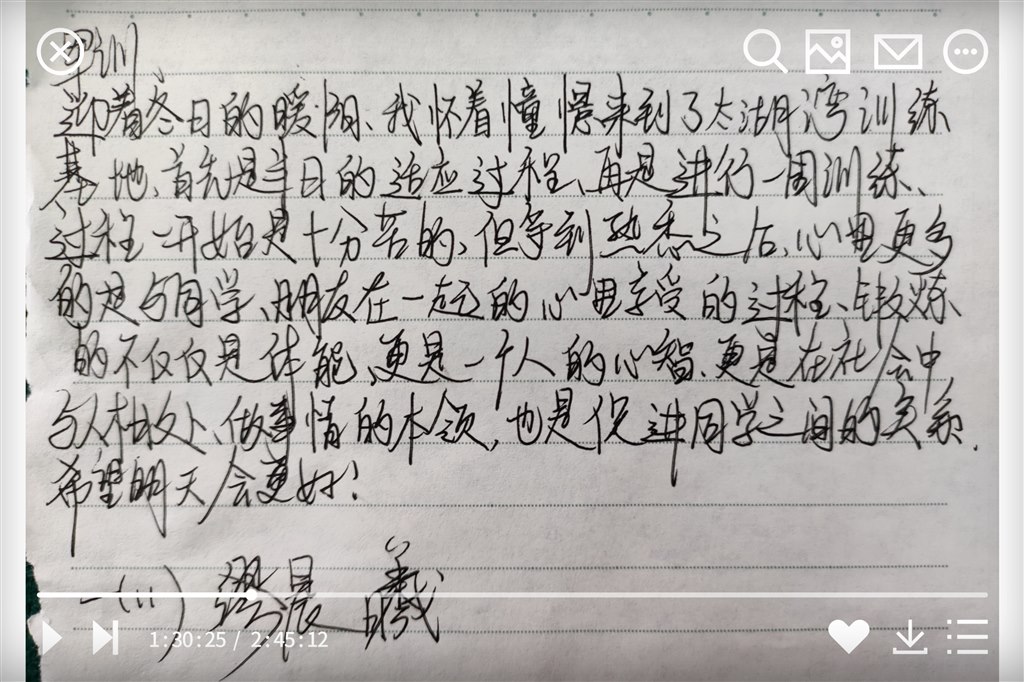 军训
迎着冬日的暖阳、我怀着憧憬来到了太湖湾训练
基地、首先是半日的适应过程、再是进行一周训练、
过程一开始是十分苦的、但等到熟悉之后、心里更多
的是与同学、朋友在一起的心里享受的过程、锻炼
的不仅仅是体能、更是一个人的心智、更是在社会中
与人相处、做事情的本领，也是促进同学之间的关系.
希望明天会更好！
一(11) 缪晨曦
1:30:25 / 2:45:12